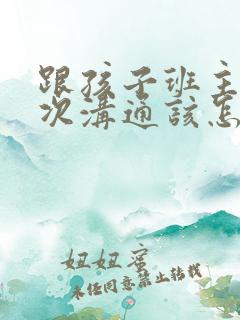 跟孩子班主
次溝通該怎
妞妞蜜
未经同意禁止转载